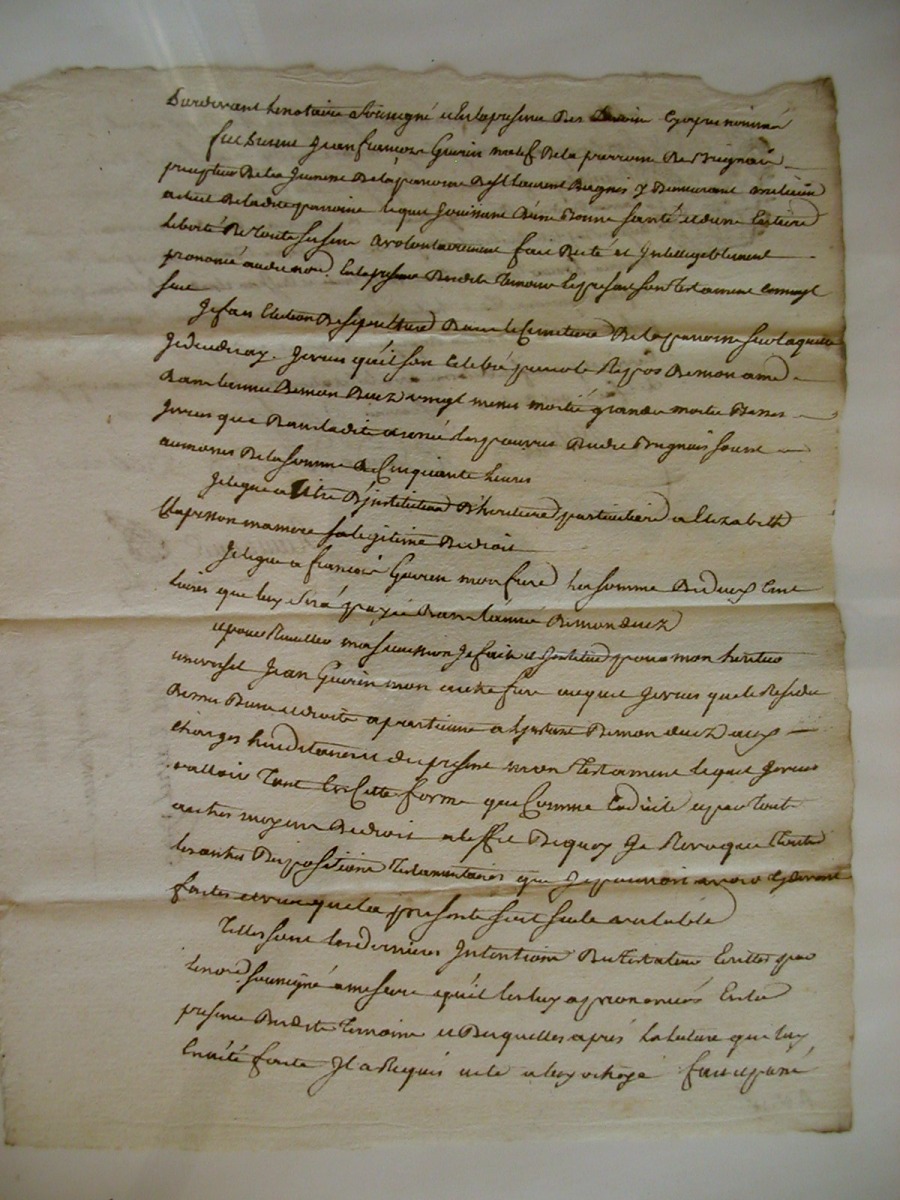 Pardevant le notaire soussigné et en la presence des temoins cy apres nommé
fut present Jean francois Guerin natif de la parroisse de Brignais
precepteur de la Jeunesse de la parroisse de St Laurent y demeurant
de la dite parroisse lequel Jouissant d'une bonne santé et d'une Entiere
liberté de toute ses sens a volontairement fait dicté et Intelligiblement
prononcé audit no.re En la presence desdits temoins le present son testament comme
suit
Je fais Election de sepulture dans le Cemetiere de la parroisse sur laquelle
Je decederay. Je veux qu'il soit celebré pour le Repos de mon ame
dans l'année de mon decez vingt messes moitié grandes moitié basses
Je veux que dans ladite année les pauvres dudit Brignais soient
aumonés de la somme de Cinquante livres
Je legue a titre d'institution d'heritiere particuliere a Elizabeth
Clapisson ma mere sa legitime de droit
Je legue a francois Guerin mon frere la somme de deux Cent
livres que luy sera payée dans l'année de mon decez
et pour Recueillir ma succession Je fais et Institue pour mon heritier
universel Jean Guerin mon autre frere auquel Je veux que le Residu
de mes biens et droits apartienne a l'Instant de mon decez aux
charges hereditaires et du present mon testament lequel Je veux
valloir tant En Cette forme que Comme Codicile et par toute
autres moyens de droit a l'effet de quoy Je Revoque toutes
les autres dispositions testamentaires que Je pourrois avoir cy devant
faites et veux que la presente soit seule valable
Telles sont les dernieres Intentions du testateur Ecrittes par
le no.re soussigné a mesure qu'il les luy a prononcées En la
presence desdits temoins et desquelles aprés la lecture que luy
En a été faite Il a Requis acte a luy octroyé fait et passé